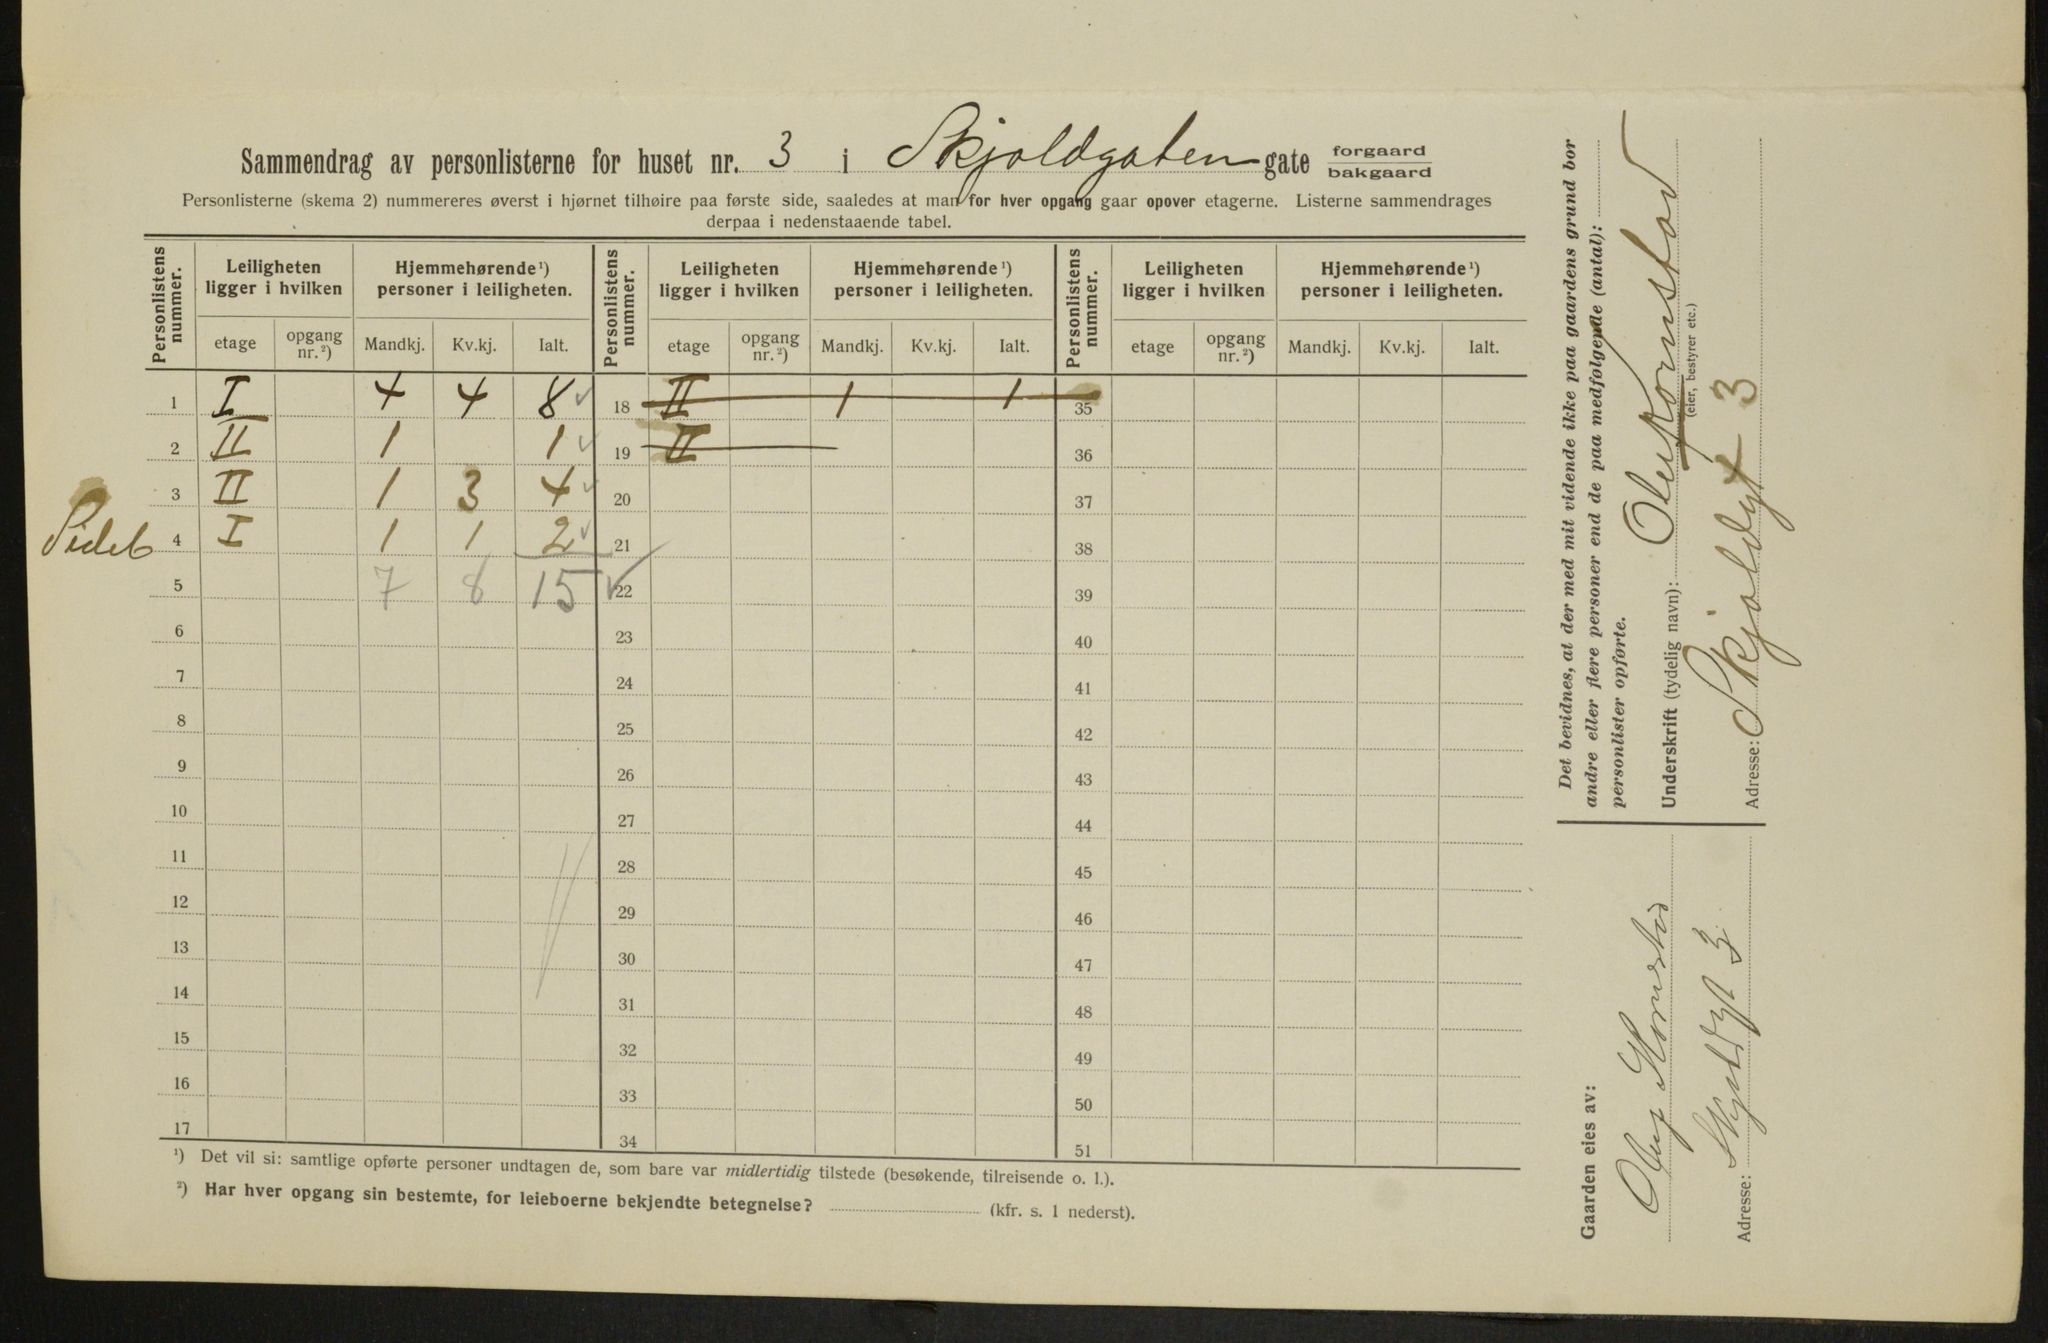 Sammendrag av personlisterne for huset nr. 3 i Skjoldgaten gate forgaard bakgaard
Personlisterne (skema 2) nummereres øverst i hjørnet tilhøire paa første side, saaledes at man for hver opgang gaar opover etagerne. Listerne sammendrages
derpaa i nedenstaaende tabel.
Personlistens nummer. Leiligheten ligger i hvilken Hjemmehørende ¹) personer i leiligheten. Personlistens nummer. Leiligheten ligger i hvilken Hjemmehørende ¹) personer i leiligheten. Personlistens nummer. Leiligheten ligger i hvilken Hjemmehørende ¹) personer i leiligheten.
etage opgang nr. ²) Mandkj. Kv.kj. Ialt. etage opgang nr. ²) Mandkj. Kv.kj. Ialt. etage opgang nr. ²) Mandkj. Kv.kj. Ialt.
1 I 4 4 8 ✓ 18 II 1 1 35
2 II 1 1 ✓ 19 II 36
3 II 1 3 4 ✓ 20 37
4 I 1 1 2 ✓ 21 38
5 7 8 15 ✓ 22 39
6 23 40
7 24 41
8 25 42
9 26 43
10 27 44
11 28 45
12 29 46
13 30 47
14 31 48
15 32 49
16 33 50
17 34 51
¹) Det vil si: samtlige opførte personer undtagen de, som bare var midlertidig tilstede (besøkende, tilreisende o. l.).
²) Har hver opgang sin bestemte, for leieboerne bekjendte betegnelse? (kfr. s. 1 nederst).
Det bevidnes, at der med mit vidende ikke paa gaardens grund bor
andre eller flere personer end de paa medfølgende (antal):
personlister opførte.
Underskrift (tydelig navn):
(eier, bestyrer etc.)
Adresse: Skjoldgt 3
Gaarden eies av:
Adresse: 3